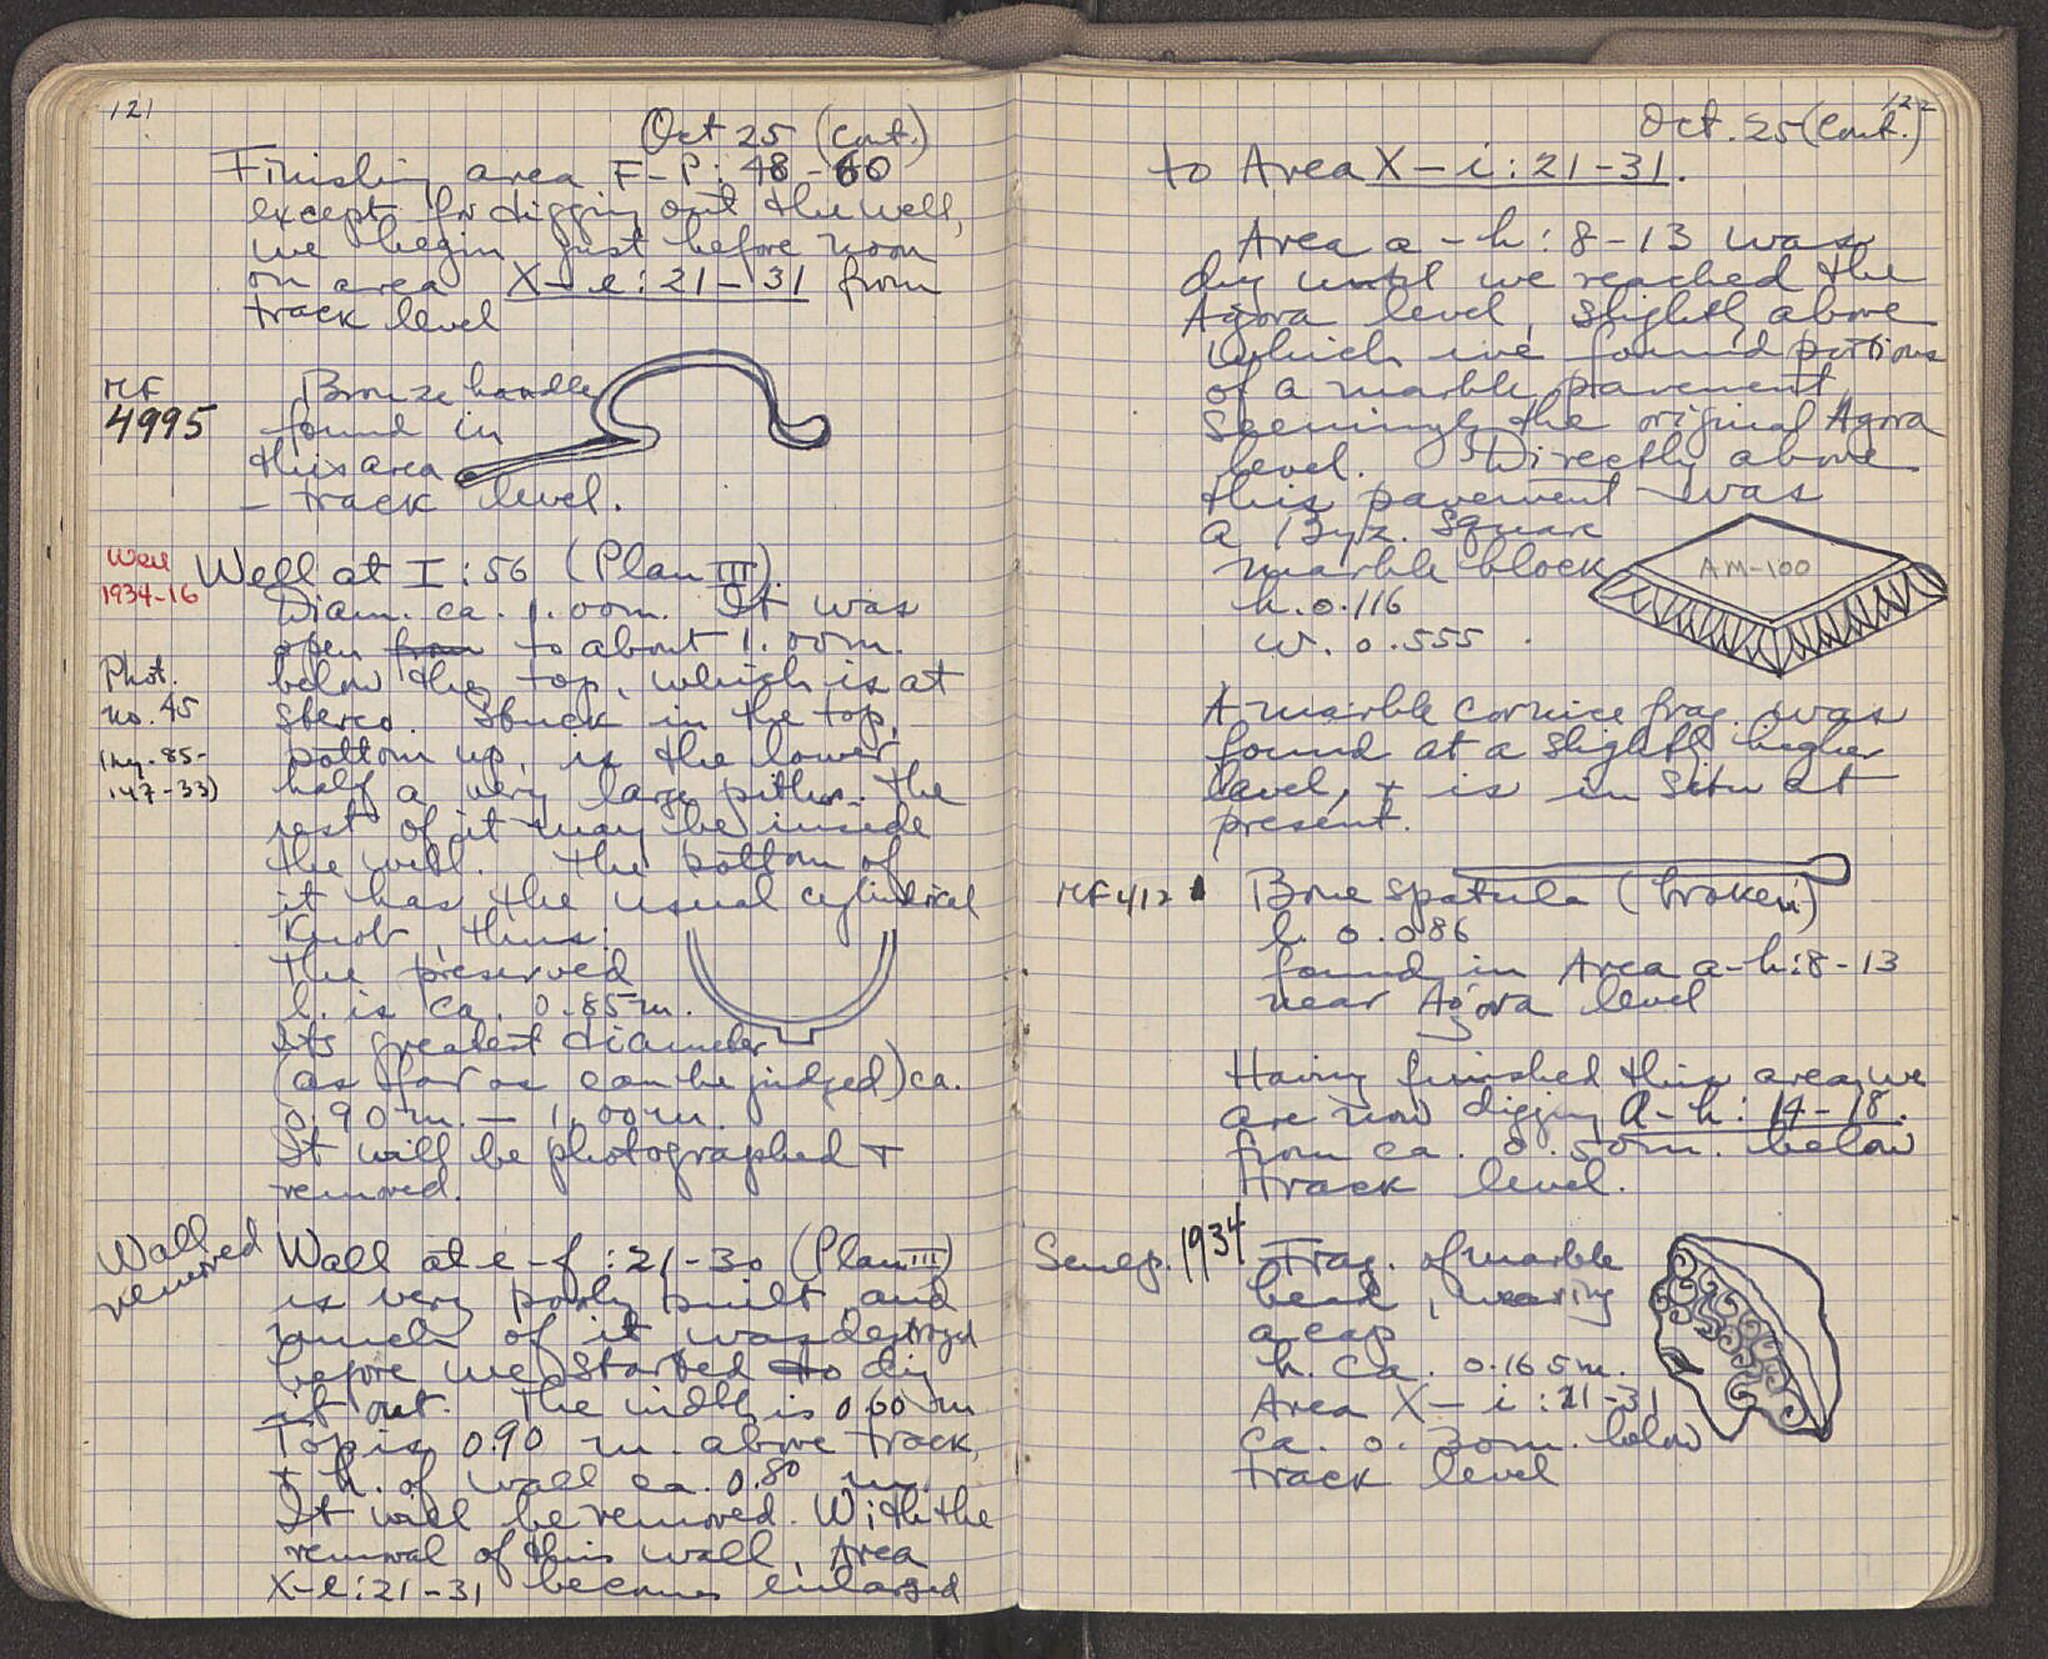 121
Oct 25 (Cont.)
Finishing area F-P: 48-60
except for digging out the well,
we begin just before noon
on area X-e: 21-31 from
track level
MF
4995
Bronze handle
found in
this area
- track level.
Well
1934-16
Well at I:56 (Plan III).
Diam. ca. 1.00m. It was
open from to about 1.00m.
below the top, which is at
stereo. Stuck in the top,
bottom up, is the lower
half a very large pithos. The
rest of it may be inside
the well. The bottom of
it has the usual cylindrical
knob, thus:
The preserved
l. is ca. 0.85m.
Its greatest diameter
(as far as can be judged) ca.
0.90m. - 1.00m.
It will be photographed +
removed.
Phot.
no. 45
147-33)
Wall
removed
Wall at e-f: 21-30 (Plan III)
is very poorly built and
much of it was destroyed
before we started to dig
it out. The width is 0.60 m
Top is 0.90 m. above track,
+ h. of wall ca. 0.80 m.
It will be removed. With the
removal of this wall, Area
X-e: 21-31 becomes enlarged
122
Oct. 25 (Cont.)
to Area X-i: 21-31.
Area a-h: 8-13 was
dug until we reached the
Agora level, slightly above
which we found portions
of a marble pavement,
seemingly the original Agora
level. Directly above
this pavement was
a Byz. square
marble block
h. 0.116
w. 0.555
AM-100
A marble cornice frag. was
found at a slightly higher
level, + is in situ at
present.
MF 412
Bone spatula (broken)
l. 0.086
found in Area a-h: 8-13
near Agora level
Having finished this area, we
are now digging a-h: 14-18.
from ca. 0.50m. below
track level.
1934
Frag. of marble
head, wearing
a cap
h. ca. 0.165m.
Area X-i: 21-31
ca. 0.30m. below
track level